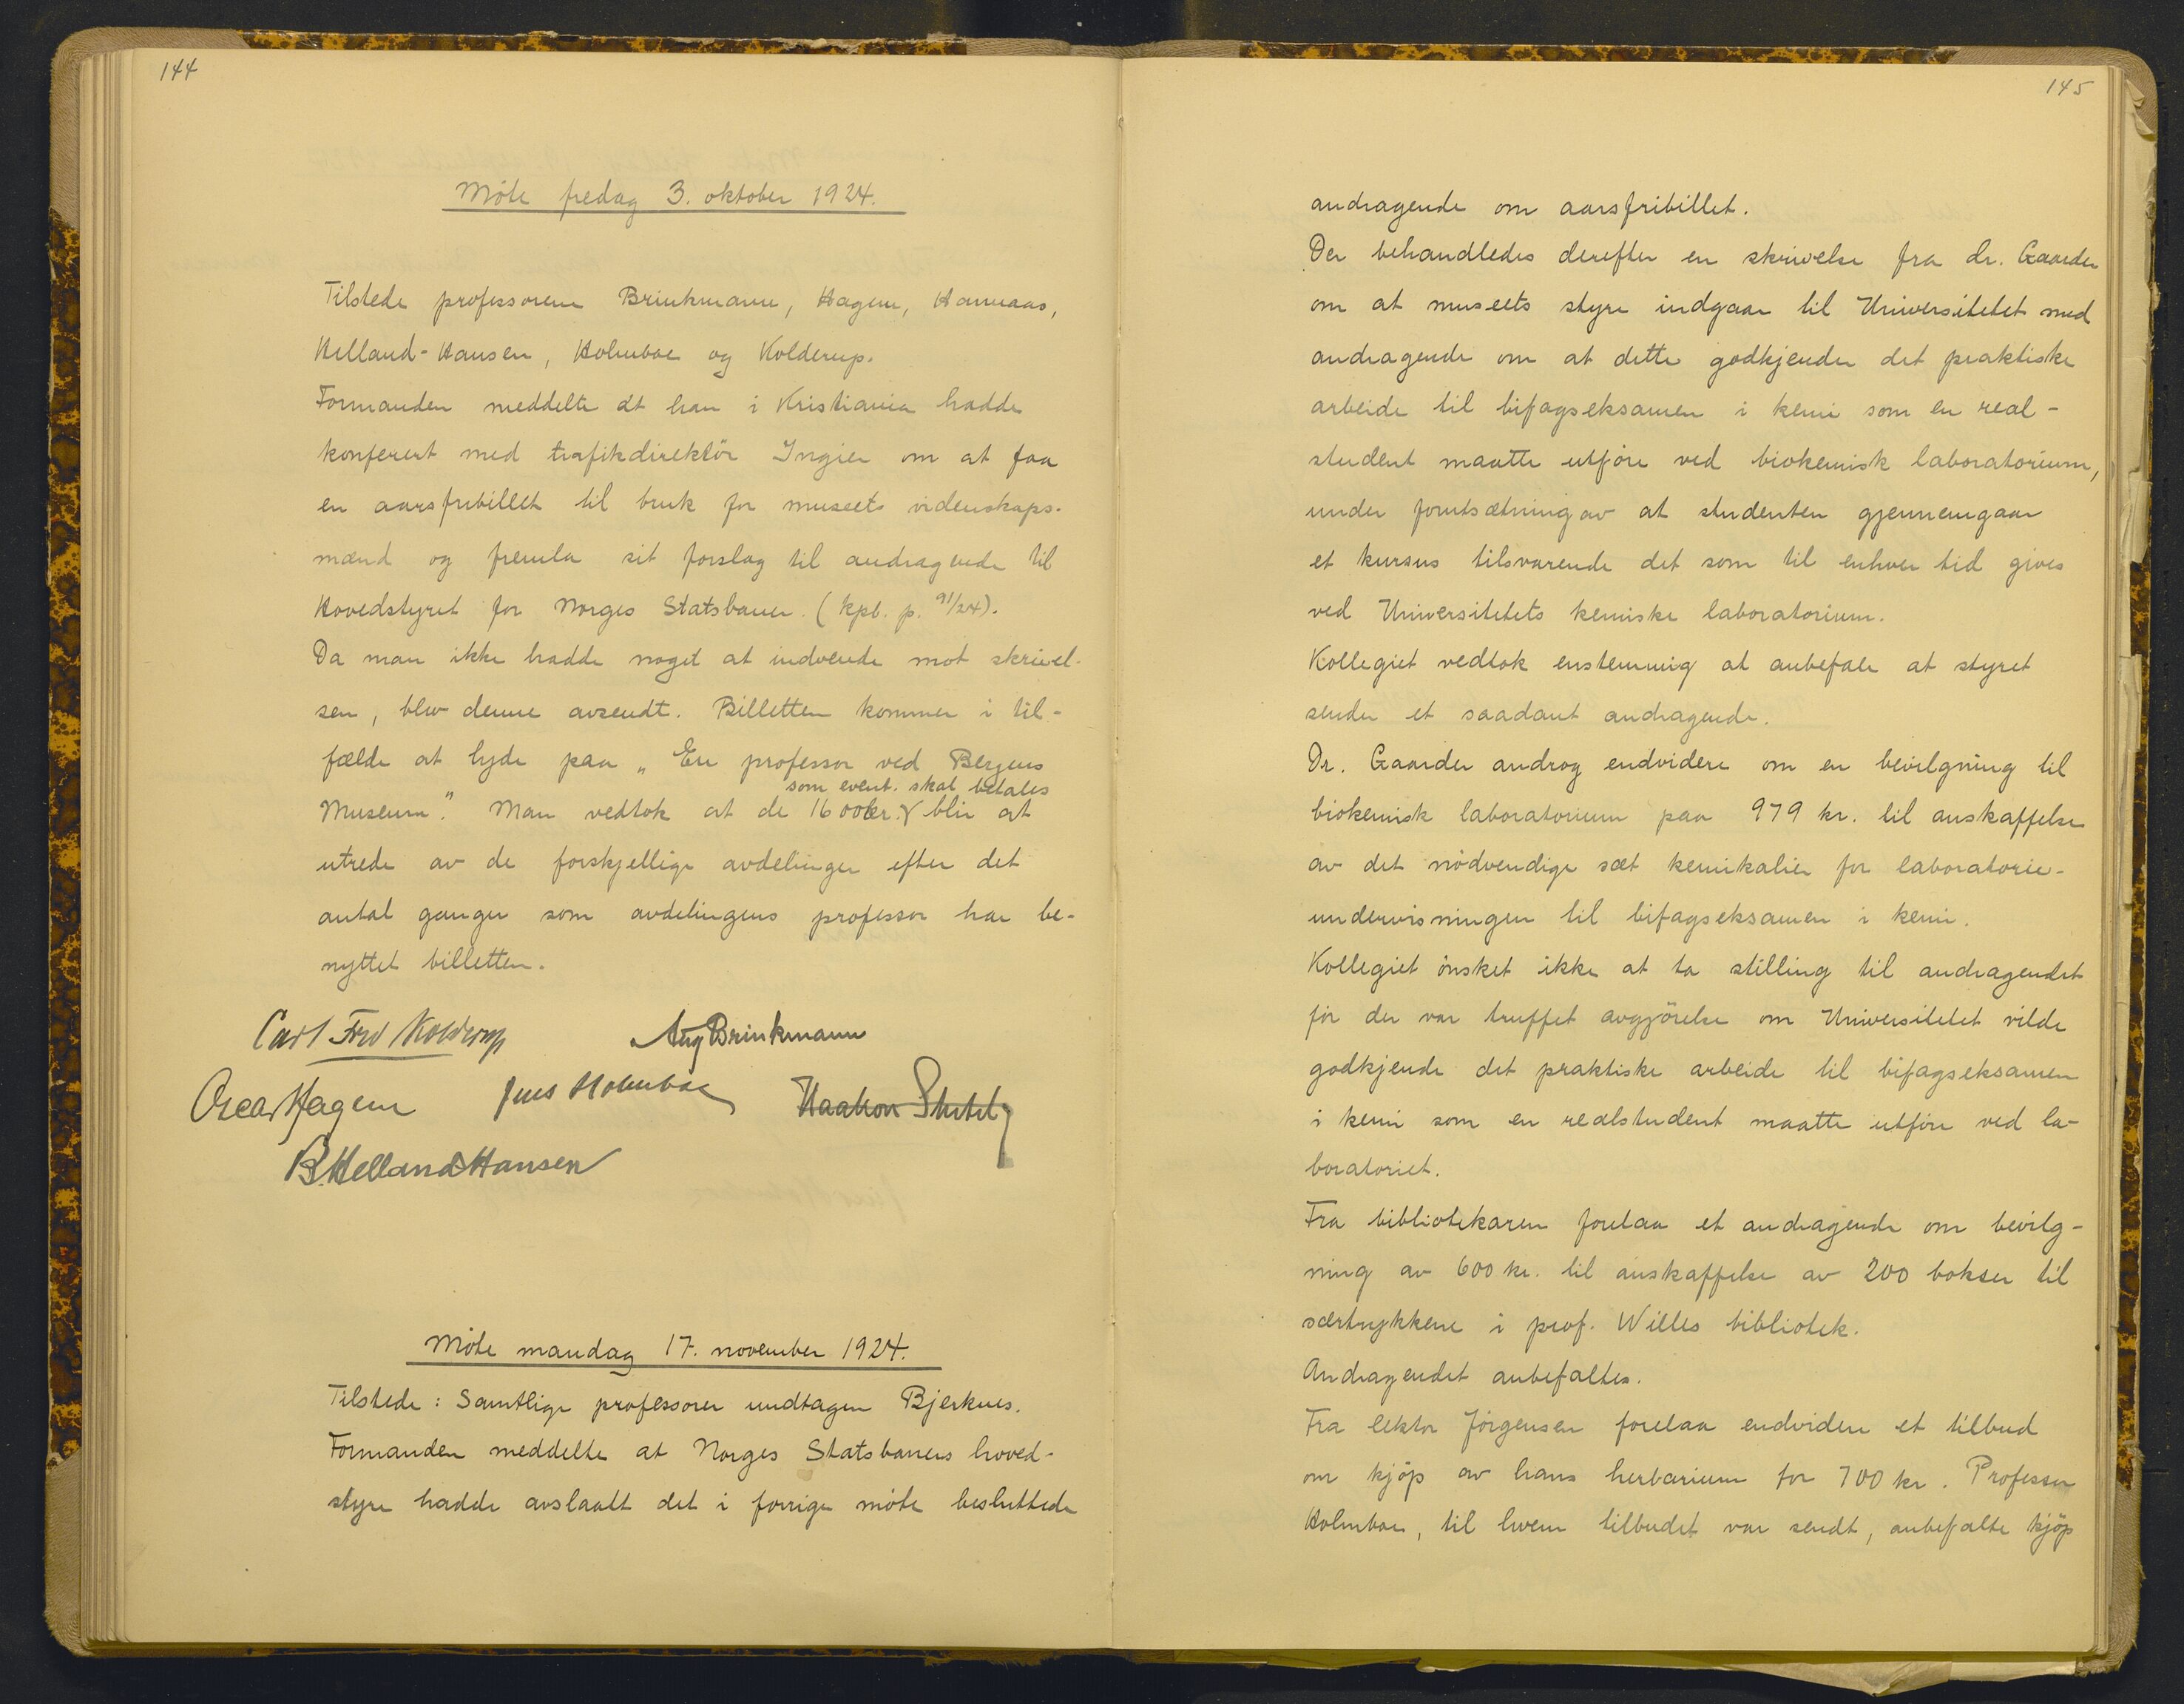 144
Möte fredag 3. oktober 1924.
Tilstede professorene Brinkmann, Hagem, Hannaas,
Helland-Hansen, Holmboe og Kolderup.
Formanden meddelte at han i Kristiania hadde
konferert med trafikdirektör Ingier om at faa
en aarsfribillet til bruk for museets videnskaps-
mænd og fremla sit forslag til andragende til
Hovedstyret for Norges Statsbaner. (kpb. p. 91/24).
Da man ikke hadde noget at indvende mot skrivel-
sen, blev denne avsendt. Billetten kommer i til-
fælde at lyde paa „En professor ved Bergens
som event. skal betales
Museum". Man vedtok at de 1600 kr. blir at
utrede av de forskjellige avdelinger efter det
antal ganger som avdelingens professor har be-
nyttet billetten.
Carl Fred Kolderup
Aug Brinkmann
Oscar Hagem
Jens Holmboe
Haakon Shetelig
B. Helland Hansen
Möte mandag 17. november 1924.
Tilstede: Samtlige professorer undtagen Bjerknes.
Formanden meddelte at Norges Statsbaners hoved-
styre hadde avslaalt det i forrige möte besluttede
145
andragende om aarsfribillet.
Der behandledes derefter en skrivelse fra dr. Gaarder
om at museets styre indgaar til Universitetet med
andragende om at dette godkjender det praktiske
arbeide til bifagseksamen i kemi som en real-
student maatte utföre ved biokemisk laboratorium,
under forutsætning av at studenten gjennemgaar
et kursus tilsvarende det som til enhver tid gives
ved Universitetets kemiske laboratorium.
Kollegiet vedtok enstemmig at anbefale at styret
sender et saadant andragende.
Dr. Gaarder androg endvidere om en bevilgning til
biokemisk laboratorium paa 979 kr. til anskaffelse
av det nödvendige sæt kemikalier for laboratorie-
undervisningen til bifagseksamen i kemi.
Kollegiet önsket ikke at ta stilling til andragendet
för der var truffet avgjörelse om Universitetet vilde
godkjende det praktiske arbeide til bifagseksamen
i kemi som en realstudent maatte utföre ved la-
boratoriet.
Fra bibliotekaren forelaa et andragende om bevilg-
ning av 600 kr. til anskaffelse av 200 bokser til
særtrykkene i prof. Willes bibliotek.
Andragendet anbefaltes.
Fra lektor Jörgensen forelaa endvidere et tilbud
om kjöp av hans herbarium for 700 kr. Professor
Holmboe, til hvem tilbudet var sendt, anbefalte kjöp